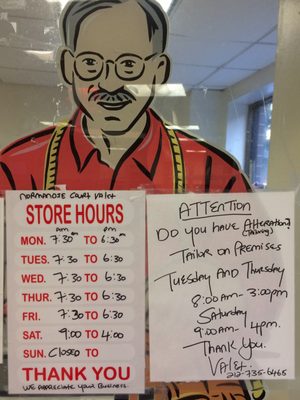 NORMANDIE COURT VALET
STORE HOURS
am pm
MON. 7:30am TO 6:30pm
TUES. 7:30 TO 6:30
WED. 7:30 TO 6:30
THUR. 7:30 TO 6:30
FRI. 7:30 TO 6:30
SAT. 9:00 TO 4:00
SUN. CLOSED TO
THANK YOU
WE APPRECIATE YOUR BUSINESS
ATTENTION
DO YOU HAVE Alterations?
(Tailoring)
Tailor on Premises
Tuesday AND Thursday
8:00am - 3:00pm
Saturday
9:00am - 4pm.
Thank you.
Valet.
212-735-6465